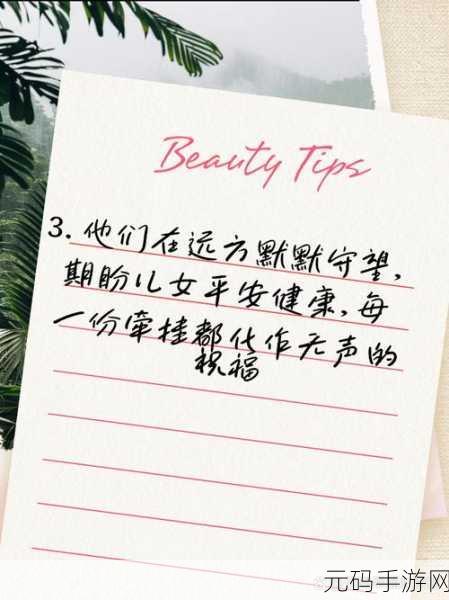 Beauty Tips
3. 他们在远方默默守望,
期盼儿女平安健康, 每
一份牵挂都化作无声的
祝福
元码手游网